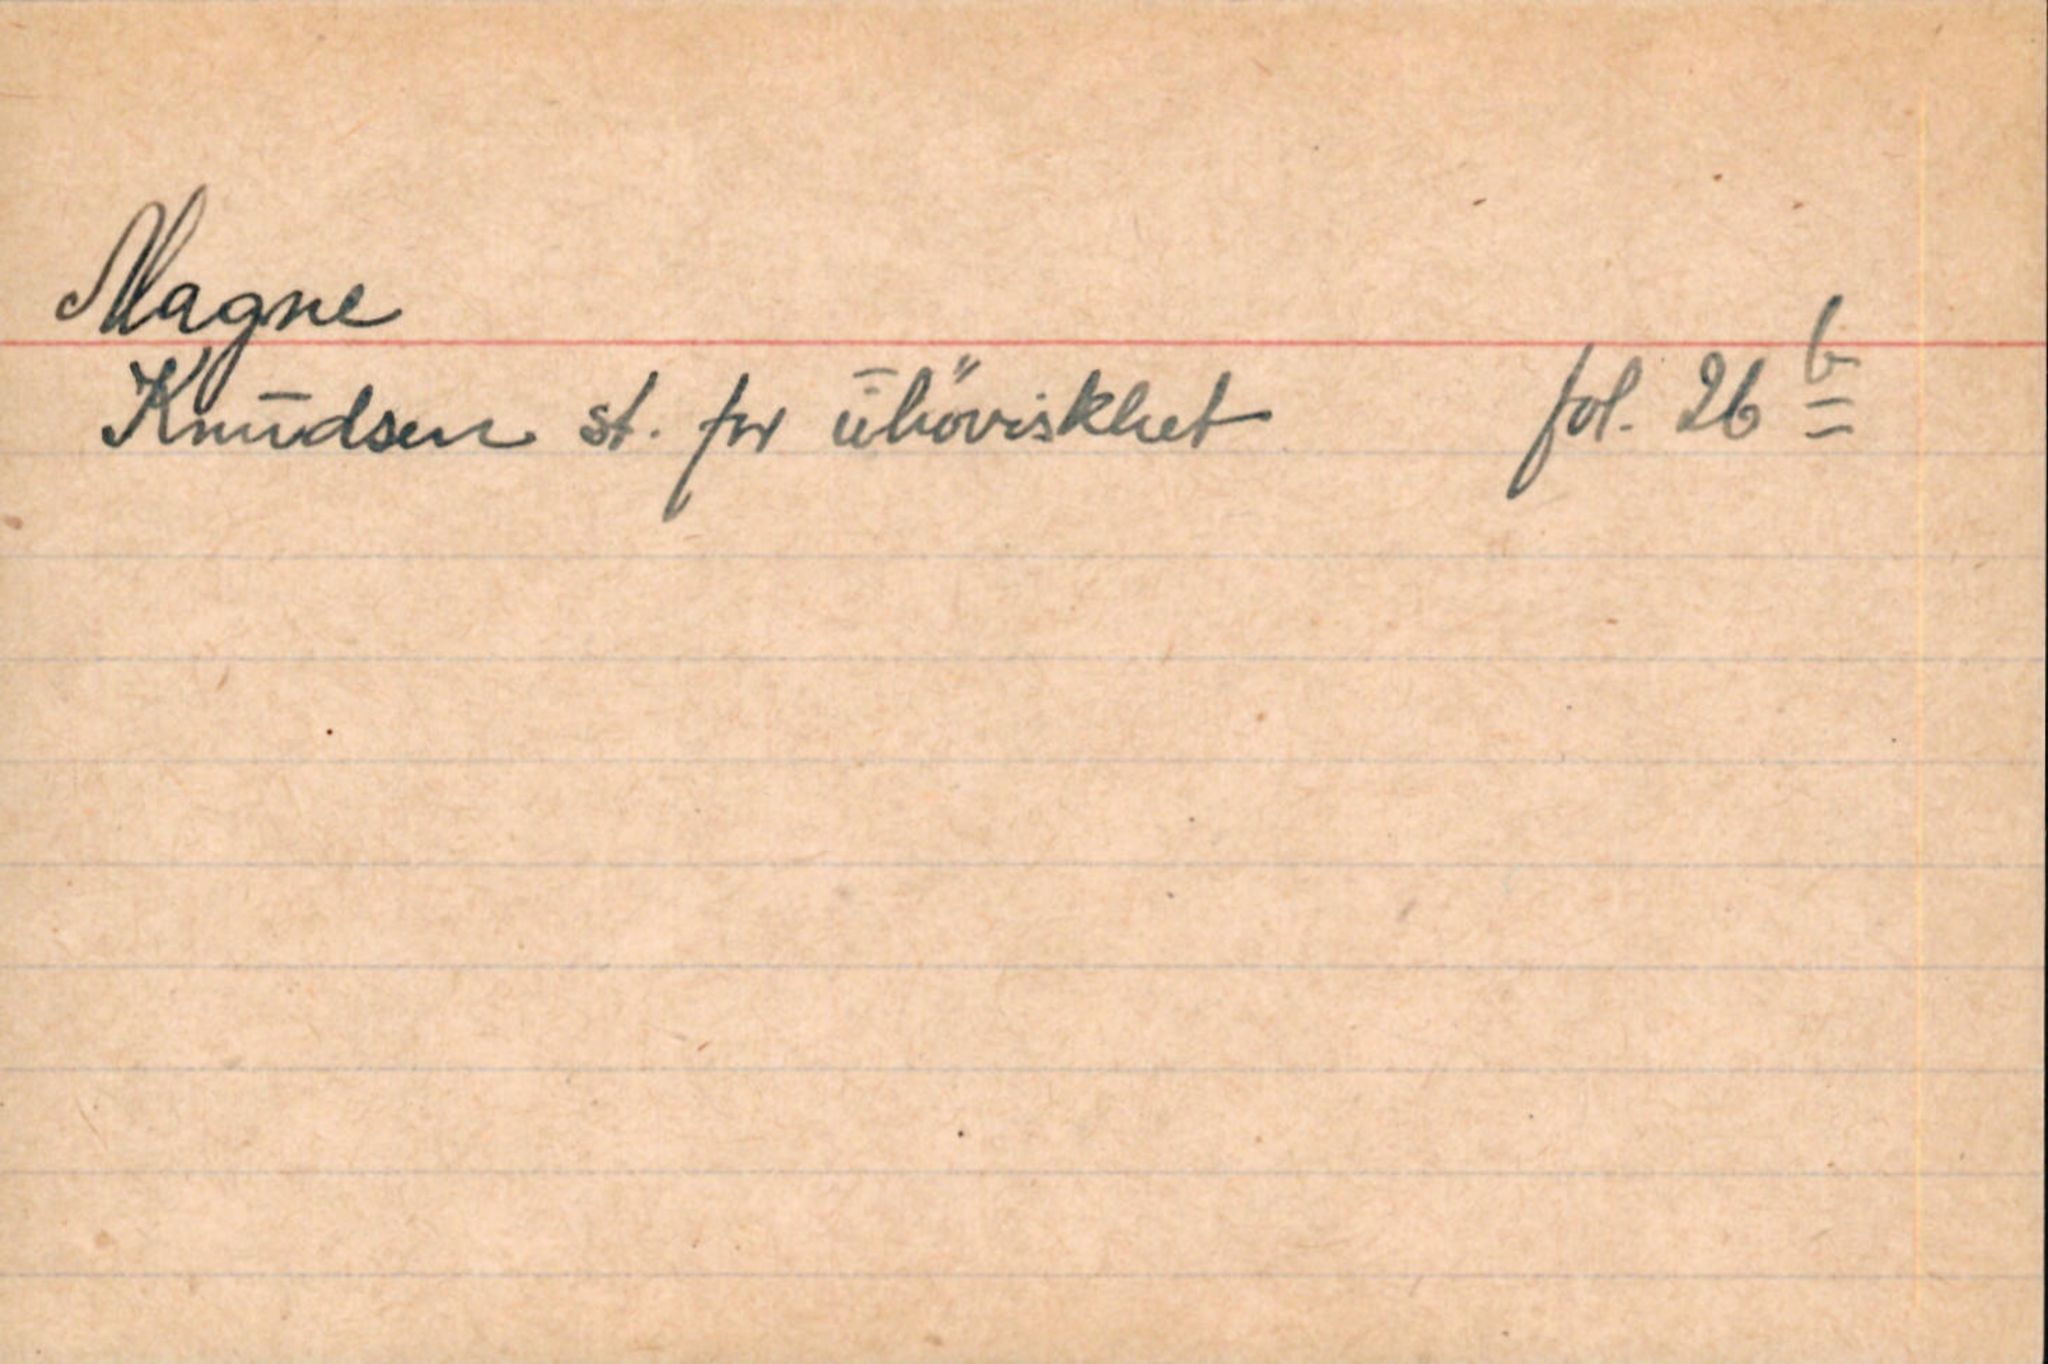 Magne
Knudsen st. for uhöviskhet fol. 26 b